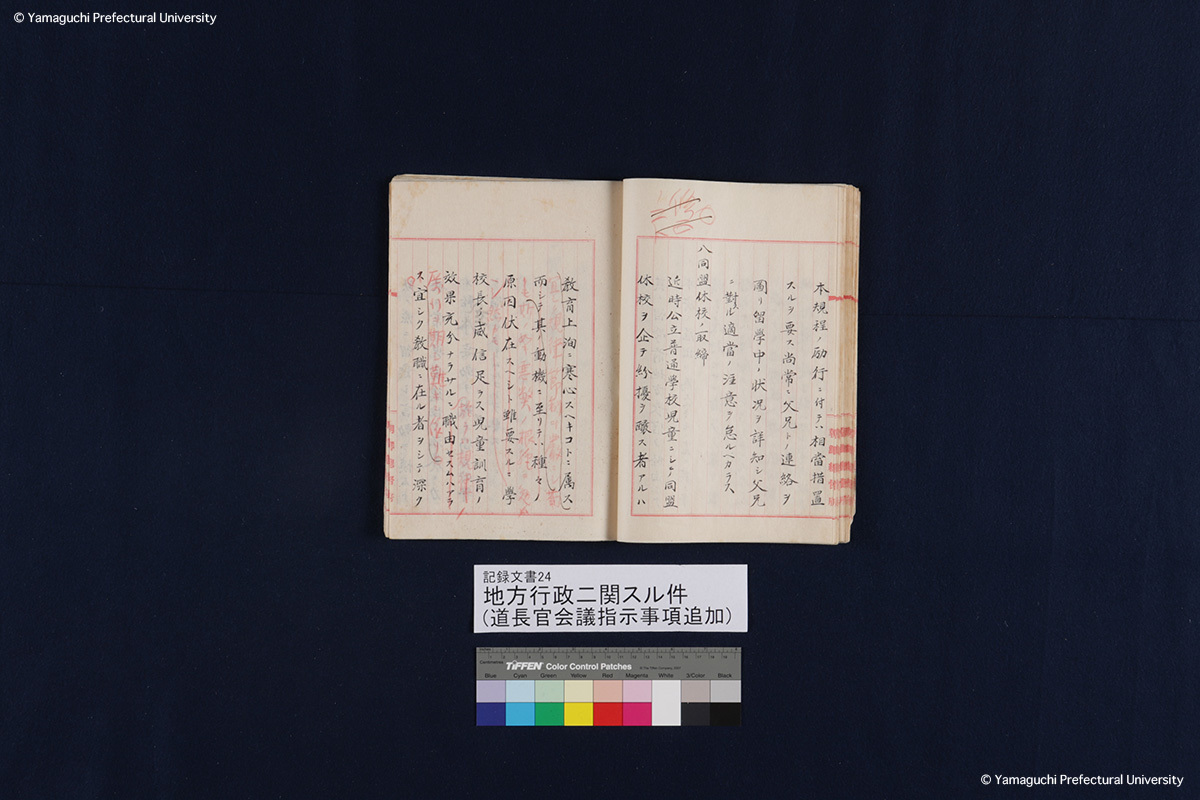 © Yamaguchi Prefectural University
本規程ノ励行ニ付テハ相當措置
スルヲ要ス尚常ニ父兄トノ連絡ヲ
圖リ留學中ノ状况ヲ詳知シ父兄
ニ對ル適當ノ注意ヲ怠ルヘカラス
八同盟休校ノ取締
近時公立普通學校児童ニシテ同盟
休校ヲ企テ紛擾ヲ醸ス者アルハ
教育上洵ニ寒心スヘキコトニ属ス
而シテ其ノ動機ニ至リテハ種々ノ
原因伏在スヘシト雖要スルニ學
校長ノ威信足ラス児童訓育ノ
效果充分ナラサルニ職由セスムハアラ
ス宜シク教職ニ在ル者ヲシテ深ク
記録文書24
地方行政ニ関スル件
(道長官会議指示事項追加)
Centimetres
TIFFEN Color Control Patches
Blue Cyan Green Yellow Red Magenta White 3/Color Black
© Yamaguchi Prefectural University